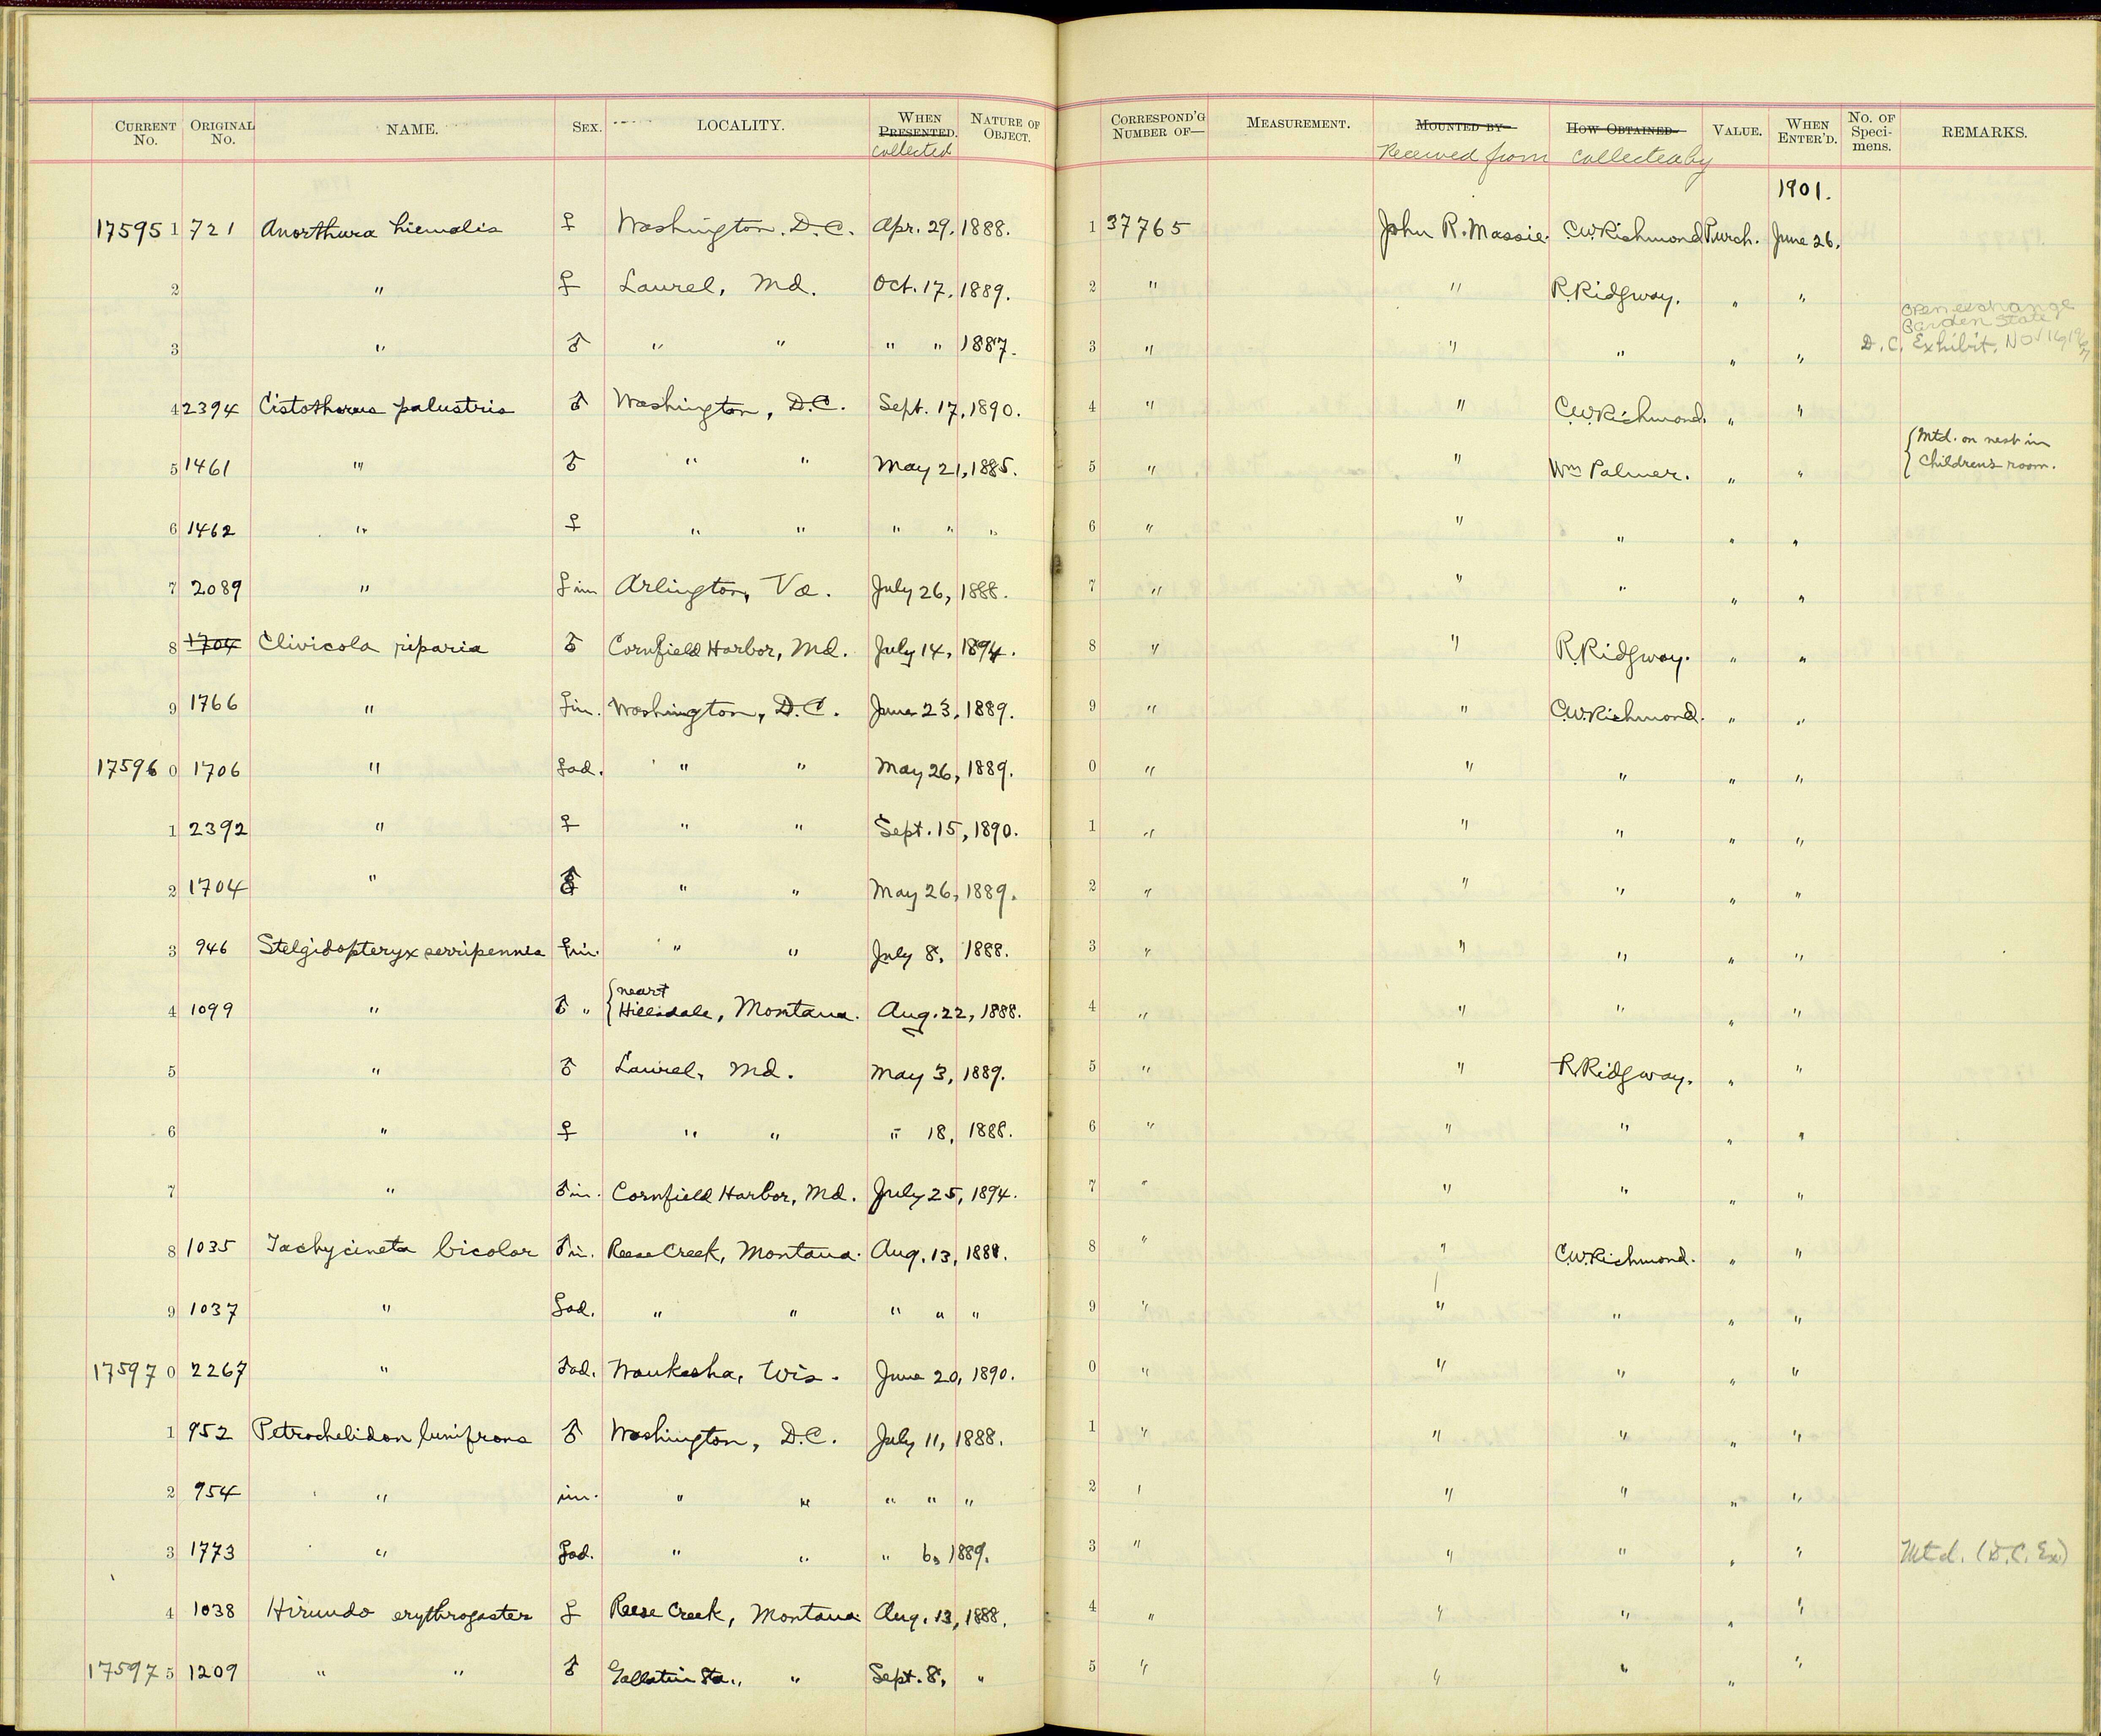 CURRENT No. ORIGINAL No. NAME. SEX. LOCALITY. WHEN PRESENTED. collected NATURE OF OBJECT. CORRESPOND'G NUMBER OF— MEASUREMENT. MOUNTED BY— Received from HOW OBTAINED— collected by VALUE. WHEN ENTER'D. No. OF Speci-mens. REMARKS.
1901.
175951 721 Anorthura hiemalis ♀ Washington, D.C. Apr. 29, 1888. 1 37765 John R. Massie. C.W.Richmond Purch. June 26.
2 " ♀ Laurel, Md. Oct. 17, 1889. 2 " " R.Ridgway. " "
3 " ♂ " " " " 1887. 3 " " " " " Open exchange Garden State D.C. Exhibit, Nov 16,
4 2394 Cistothorus palustris ♂ Washington, D.C. Sept. 17, 1890. 4 " " C.W.Richmond. " "
5 1461 " ♂ " " May 21, 1885. 5 " " Wm Palmer. " " { Mtd. on nest in Childrens room.
6 1462 " ♀ " " " " " 6 " " " " "
7 2089 " ♀ im Arlington, Va. July 26, 1888. 7 " " " " "
8 1704 Clivicola riparia ♂ Cornfield Harbor, Md. July 14, 1894. 8 " " R.Ridgway. " "
9 1766 " ♀ im. Washington, D.C. June 23, 1889. 9 " " C.W.Richmond. " "
175960 1706 " ♀ ad. " " May 26, 1889. 0 " " " " "
1 2392 " ♀ " " Sept. 15, 1890. 1 " " " " "
2 1704 " ♂ " " May 26, 1889. 2 " " " " "
3 946 Stelgidopteryx serripennis ♀ im. " " July 8, 1888. 3 " " " " "
4 1099 " ♂ " { near Hillsdale, Montana. Aug. 22, 1888. 4 " " " " "
5 " ♂ Laurel, Md. May 3, 1889. 5 " " R.Ridgway. " "
6 " ♀ " " " 18, 1888. 6 " " " " "
7 " ♂ im. Cornfield Harbor, Md. July 25, 1894. 7 " " " " "
8 1035 Tachycineta bicolor ♂ im. Reese Creek, Montana. Aug. 13, 1888. 8 " " C.W.Richmond. " "
9 1037 " ♀ ad. " " " " " 9 " " " " "
175970 2267 " ♂ ad. Waukesha, Wis. June 20, 1890. 0 " " " " "
1 952 Petrochelidon lunifrons ♂ Washington, D.C. July 11, 1888. 1 " " " " "
2 954 " im. " " " " " 2 " " " " "
3 1773 " ♀ ad. " " " 6, 1889. 3 " " " " " Mtd. (D.C. Ex)
4 1038 Hirundo erythrogaster ♀ Reese Creek, Montana Aug. 13, 1888. 4 " " " " "
175975 1209 " " ♂ Gallatin Sta., " Sept. 8, " 5 " " " " "